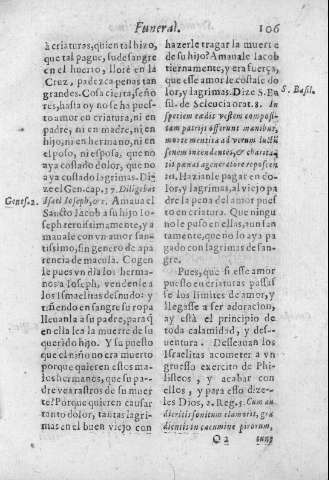 Funeral. 106
à criaturas, quien tal hizo,
que tal pague, sude sangre
en el huerto, llore en la
Cruz, padezca penas tan
grandes. Cosa cierta, seño
res, hasta oy no se ha pues
to amor en criatura, ni en
padre, ni en madre, ni en
hijo, ni en hermano, ni en
el poso, ni esposa, que no
aya costado dolor, que no
aya costado lagrimas. Di
ze el Gen. cap. 37. Diligebat
Genes. 2.
Israel Ioseph, &c. Amaua el
Sancto Iacob a su hijo Io-
seph ternissimamente, y a
mauale con vn amor san-
tissimo, sin genero de apa
rencia de macula. Cogen
le pues vn dia los herma-
nos a Ioseph, vendenle a
los Ismaelitas desnudo: y
tiñendo en sangre su ropa
lleuanla a su padre, para q̃
en ella lea la muerte de su
querido hijo. Y supuesto
que el niño no era muerto
porque quieren estos ma-
los hermanos, que su pa-
dre vea rastros de su muer
te? Porque quieren causar
tanto dolor, tantas lagri-
mas en el buen viejo con
hazerle tragar la muerte
de su hijo? Amauale Iacob
tiernamente, y era fuerça,
que esse amor le costase do
lor, y lagrimas. Dize S. Ba
S. Basil.
sil. de Seleucia orat. 8. In
speciem cædis vestem composi-
tam patrijs offerunt manibus,
morte mentita ad verum luctũ
sensum intendentes, & charita
tis pœnas a genitore reposcen
tes. Hazianle pagar en do-
lor, y lagrimas, al viejo pa
dre la pena del amor pues
to en criatura. Que ningu
no le puso en ellas, aun san
tamente, que no lo aya pa
gado con lagrimas de san-
gre.
Pues, que si esse amor
puesto en criaturas passas
se los limites de amor, y
llegasse a ser adoracion,
ay está el principio de
toda calamidad, y des-
uentura. Desseauan los
Israelitas acometer a vn
gruesso exercito de Phi-
listeos, y acabar con
ellos, y para esso dize-
les Dios, 2. Reg. 5. Cum au-
dieritis sonitum clamoris, gra
dientis in cacumine pirorum,
Q 2 tunc